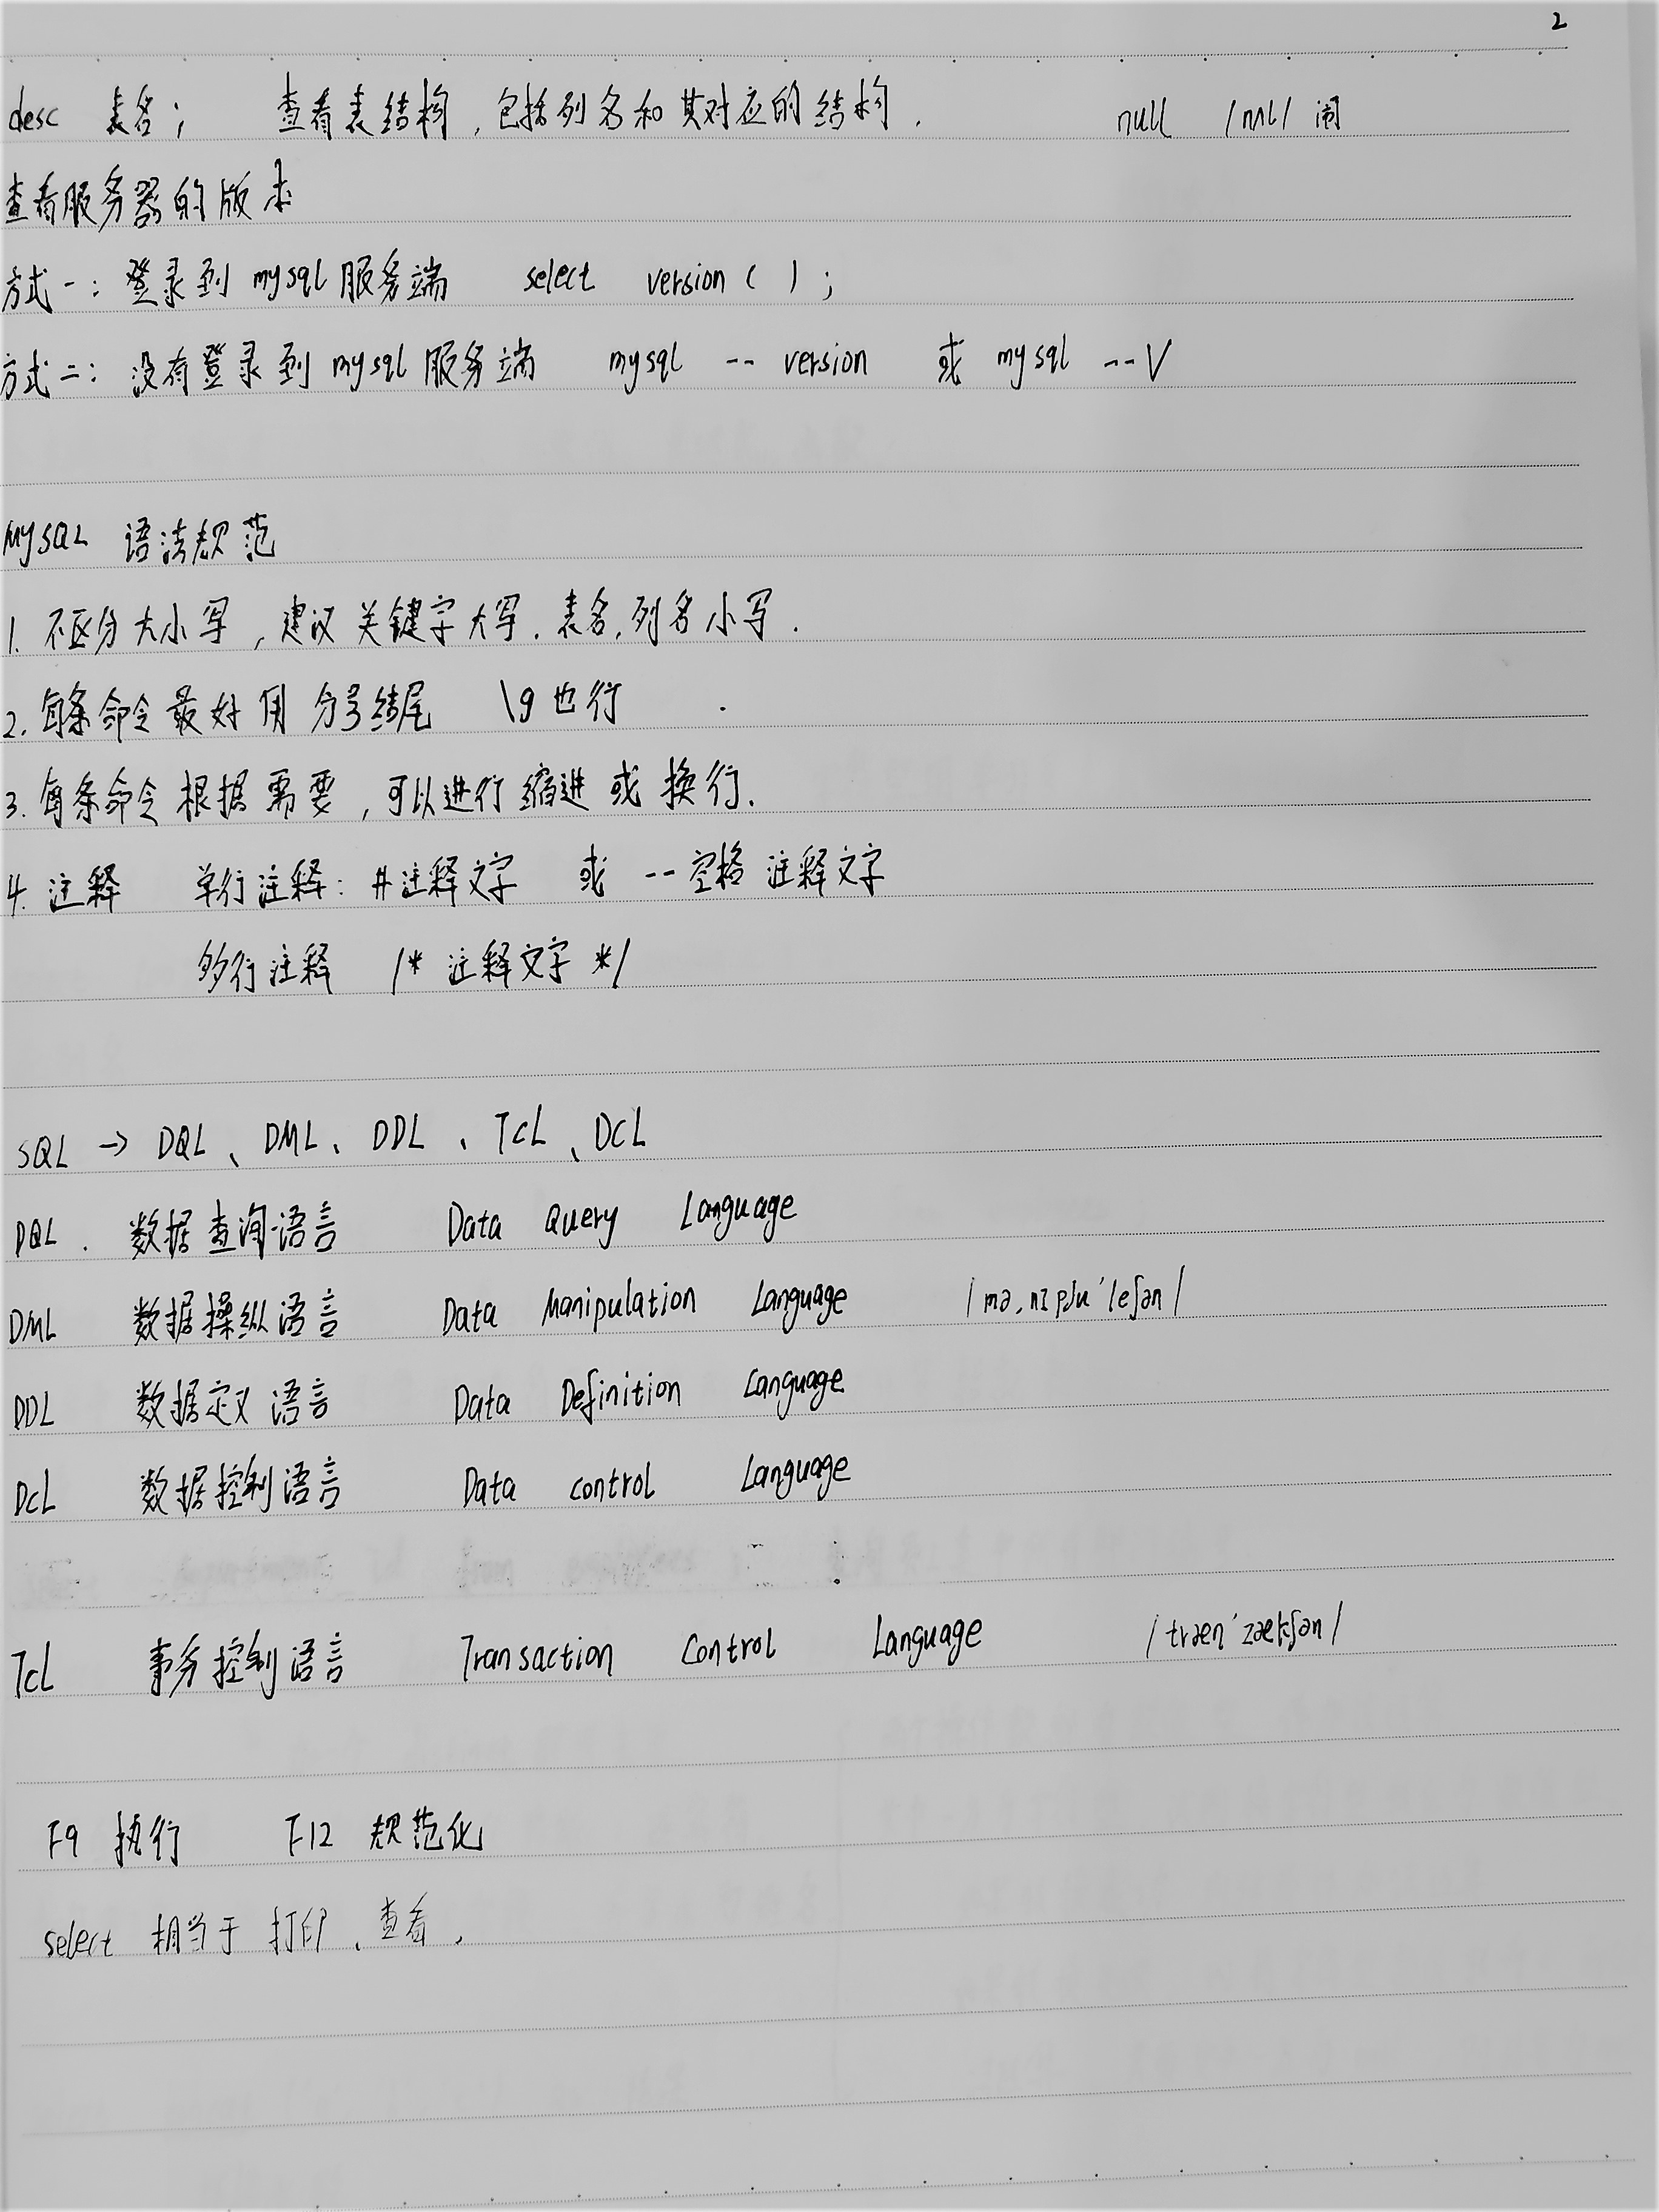 2
desc 表名； 查看表结构，包括列名和其对应的结构． null /nʌl/
查看服务器的版本
方式一：登录到 mysql 服务端 select version ( ) ;
方式二：没有登录到 mysql 服务端 mysql -- version 或 mysql --V
MySQL 语法规范
1. 不区分大小写，建议关键字大写．表名，列名小写．
2. 每条命令最好用分号结尾 \g 也行
3. 每条命令根据需要，可以进行缩进或换行．
4. 注释 单行注释：#注释文字 或 --空格 注释文字
多行注释 /* 注释文字 */
SQL → DQL、DML、DDL、TCL、DCL
DQL . 数据查询语言 Data Query Language
DML 数据操纵语言 Data Manipulation Language
DDL 数据定义语言 Data Definition Language
DCL 数据控制语言 Data control Language
TCL 事务控制语言 Transaction Control Language /træn'zækʃən/
F9 执行 F12 规范化
select 相当于 打印、查看．